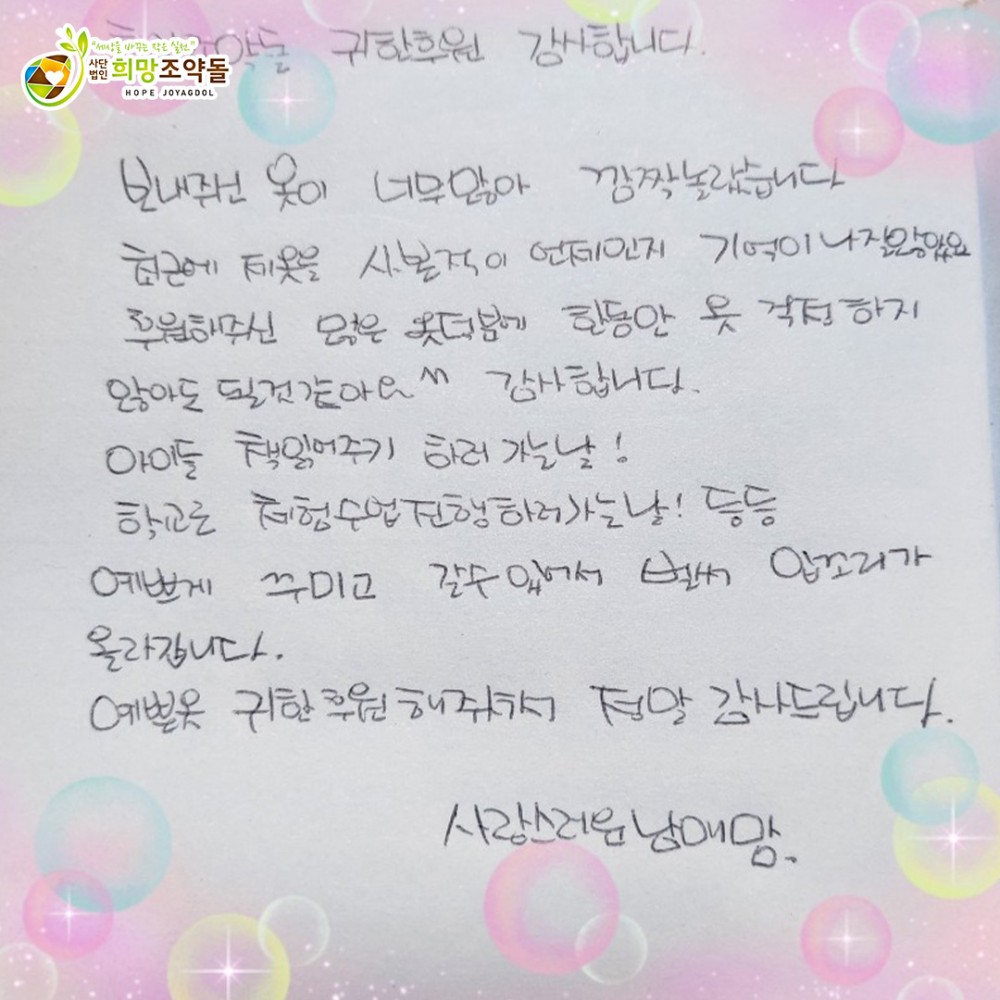 "세상을 바꾸는 작은 실천"
사단법인 희망조약돌
HOPE JOYAGDOL
귀한후원 감사합니다.
보내주신 옷이 너무많아 깜짝놀랐습니다
최근에 제옷을 사본적이 언제인지 기억이나질않았요
후원해주신 많은 옷덕붐에 한동안 옷 걱정하지
않아도 될것같아요^^ 감사합니다.
아이들 책읽어주기 하러가는날!
학교로 체험수업진행하러가는날! 등등
예쁘게 꾸미고 갈수있어서 벌써 입꼬리가
올라갑니다.
예쁜옷 귀한후원해주셔서 정말 감사드립니다.
사랑스러운남매맘.